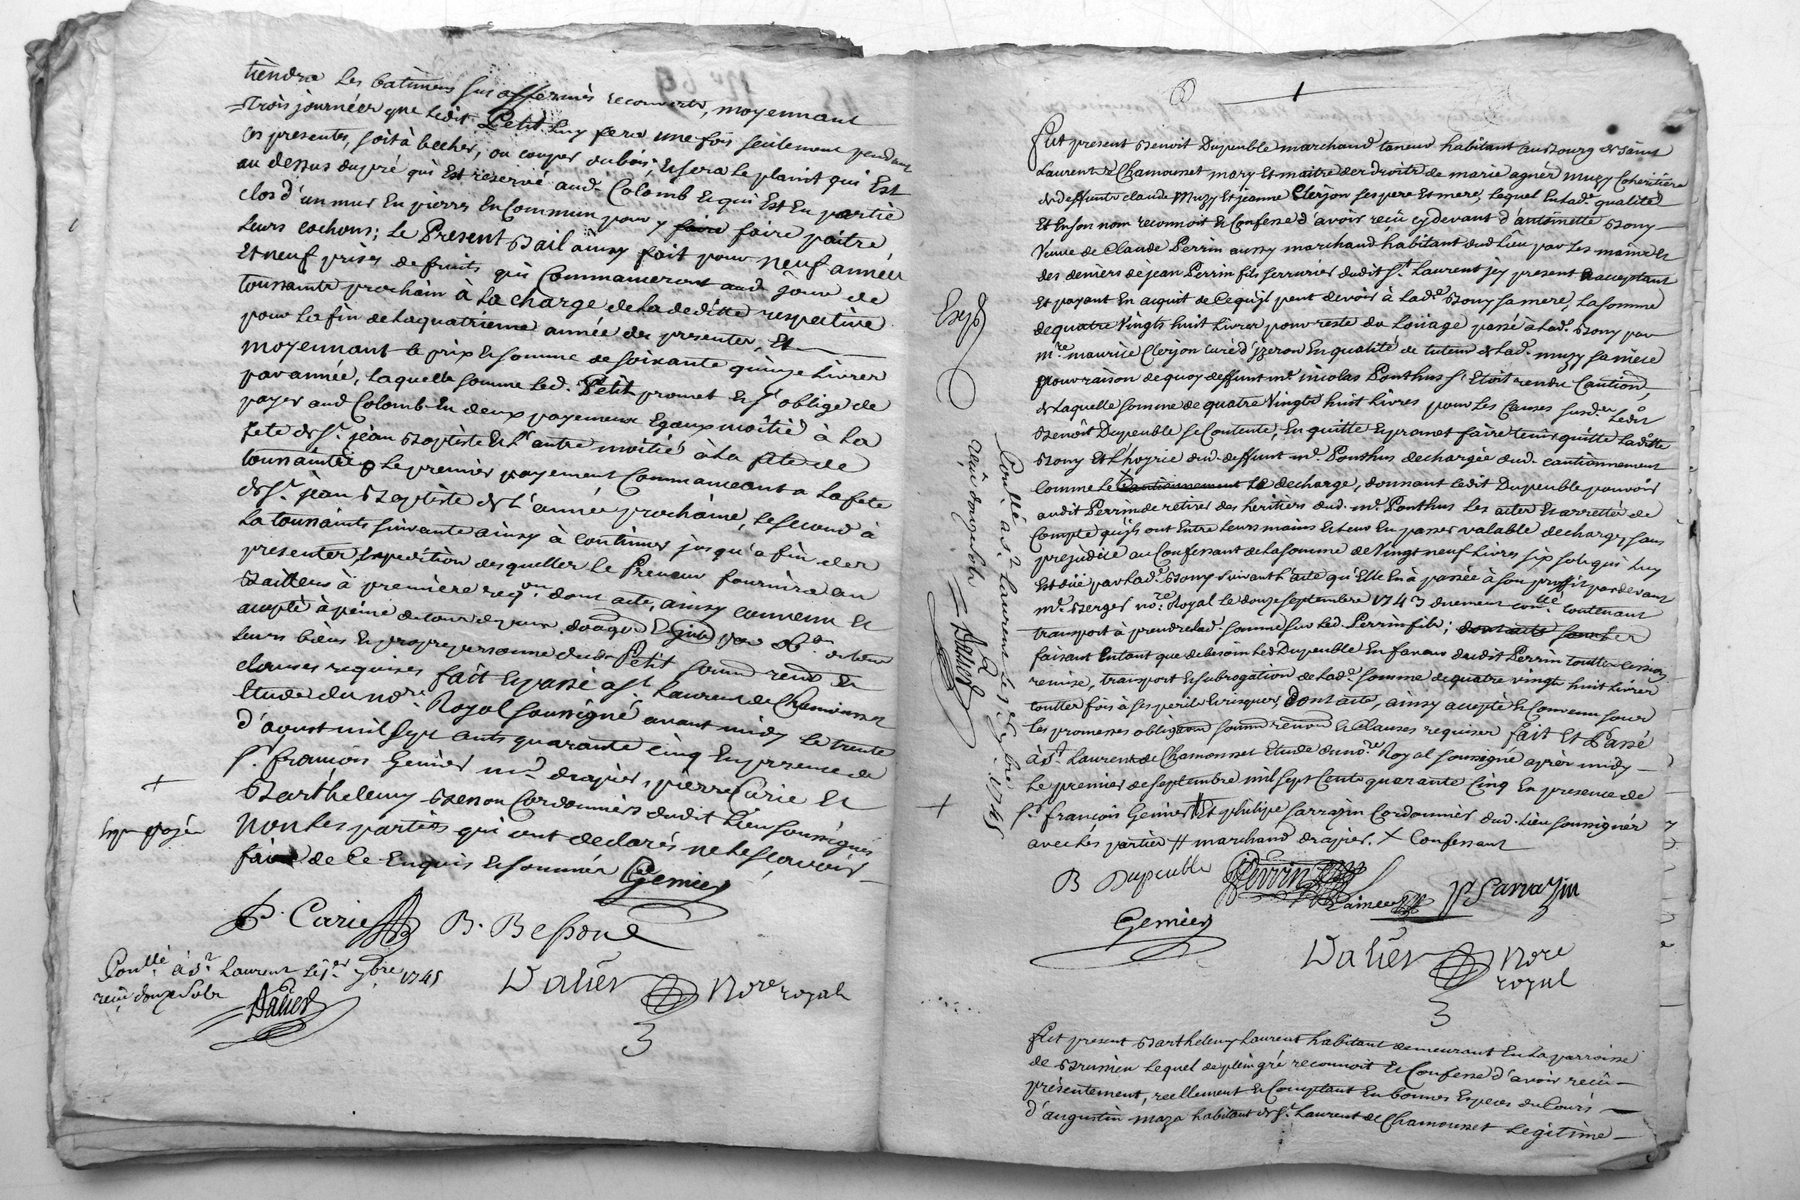 tiendra les batimens sus affermés recouverts, moyennant
trois journées que ledit Petit luy fera une fois seulement pendant
ces presentes, soit à becher, ou couper du bois; & sera le plainit qui est
au dessus du pré qui est reservé aud. Colomb & qui est en partie
clos d'un mur en pierres en commun pour y faire faire paitre
leurs cochons; Le Present Bail ainsy fait pour neuf années
et neuf prises de fruits qui commanceront aud. jour de
toussaints prochain à la charge de la deditte respective
pour la fin de la quatrieme année des presentes, Et
moyennant le prix & somme de soixante quinze livres
par année, laquelle somme led. Petit promet & s'oblige de
payer aud Colomb en deux payemens egaux moitié à la
fete de St. jean Baptiste & l'autre moitié à la fete de
toussaints le premier payement commanceant à la fete
de St. jean Baptiste de l'année prochaine, le second à
la toussaints suivante ainsy à continuer jusqu'a fin des
presentes expedition desquelles le Preneur fournira au
Bailleur à premiere reqon. dont acte, ainsy convenu et
accepté à peine de tous depens
leurs biens & propre personne dud. Petit soum. renon. &
clauses requises fait & passé a St. Laurent de Chamousset
Etude du nore. Royal soussigné avant midy le trente
d'aoust mil sept cents quarante cinq en presence de
sr. françois Genier md. drapier, pierre Carie et
Barthelemy Besson Cordonniers dudit lieu soussignés
non les parties qui ont declarés ne le sçavoir
faire de ce enquis & sommés Genier
+
P. Carie B. Besson
Conllé. à St. Laurent le 1er. 7bre. 1745
reçu douze sols
Dalier
Dalier Nore royal
+
Fut present Benoit Dupeuble marchand taneur habitant au Bourg de saint
Laurent de Chamousset mary et maitre des droits de marie agnés Muzy coheritiere
de deffunts claude Muzy et jeanne Clerjon ses pere et mere, lequel en lad. qualité
Et en son nom reconnoit & confesse d'avoir reçu cy devant d'antoinette Bony
veuve de Claude Perrin aussy marchand habitant dud lieu par les mains et
des deniers de jean Perrin fils serrurier dudit St. Laurent icy present & acceptant
et payant en acquit de ce qu'il peut devoir à lade. Bony sa mere, la somme
de quatre vingts huit livres pour reste du Loüage passé à lad. Bony par
mre. maurice Clerjon curé d'yzeron en qualité de tuteur de lad. muzy sa niece
pour raison de quoy deffunt me. nicolas Ponthus s'etoit rendu Caution,
de laquelle somme de quatre vingts huit livres pour les causes susd. ledit
Benoît Dupeuble se contente, en quitte & promet faire tenir quitte laditte
Bony et l'hoyrie dud. deffunt me. Ponthus dechargée dud. cautionnement
comme le cautionnement la decharge, donnant ledit Dupeuble pouvoir
audit Perrin de retirer des heritiers dud. me. Ponthus les actes & arrettés de
compte qu'ils ont entre leurs mains & leur en passer valable decharge, sans
prejudice au Confessant de la somme de vingt neuf livres six sols qui luy
est düe par lade. Bony suivant l'acte qu'elle en a passée à son proffit pardevant
me. Berger nore. Royal le douze septembre 1743 duement conllé. contenant
transport à prendre lad. somme sur led. Perrin fils; dont acte
faisant en tant que de besoin led Dupeuble en faveur dudit Perrin touttes cession
remise, transport & subrogation de lade. somme de quatre vingts huit livres
touttes fois à ses perils & risques, Dont acte, ainsy accepté & convenu sous
les promesses obligaon soum renon & clauses requises fait et Passé
à St. Laurent de Chamousset Etude du nore. Royal soussigné après midy
Le premier de septembre mil sept Cents quarante cinq en presence de
sr. françois Genier # et philipe sarrazin cordonnier dud. lieu soussignés
avec les parties # marchand drapier. X Confessant
+
Conllé a St. Laurent le 1er 7bre 1745
reçu douze sols
Dalier
B Dupeuble Perrin P Sarrazin
Genier
Dalier Nore
royal
Fut present Barthelemy Laurent habitant demeurant en la parroisse
de Brumieu lequel de plein gré reconnoit & confesse d'avoir reçû
présentement, reellement & comptant en bonnes especes du cours
d'augustin maza habitant de St. Laurent de Chamousset legitime